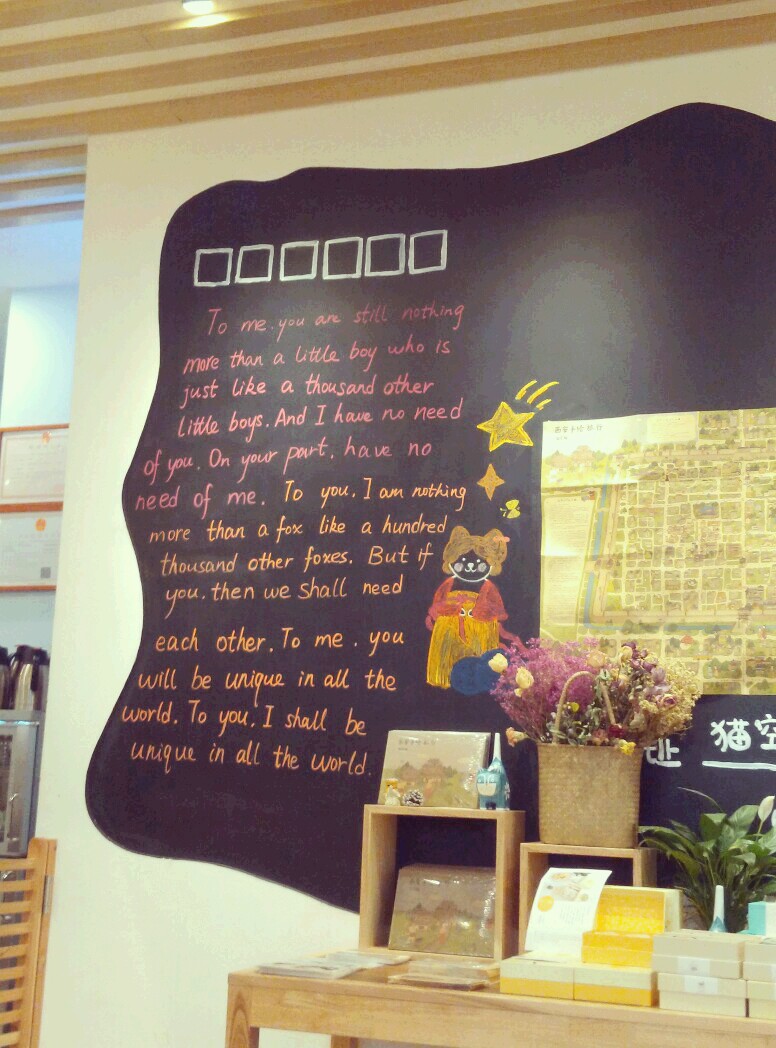 To me. you are still nothing
more than a little boy who is
just like a thousand other
little boys. And I have no need
of you. On your part, have no
need of me. To you, I am nothing
more than a fox like a hundred
thousand other foxes. But if
you. then we shall need
each other. To me. you
will be unique in all the
world. To you. I shall be
unique in all the world.
猫空